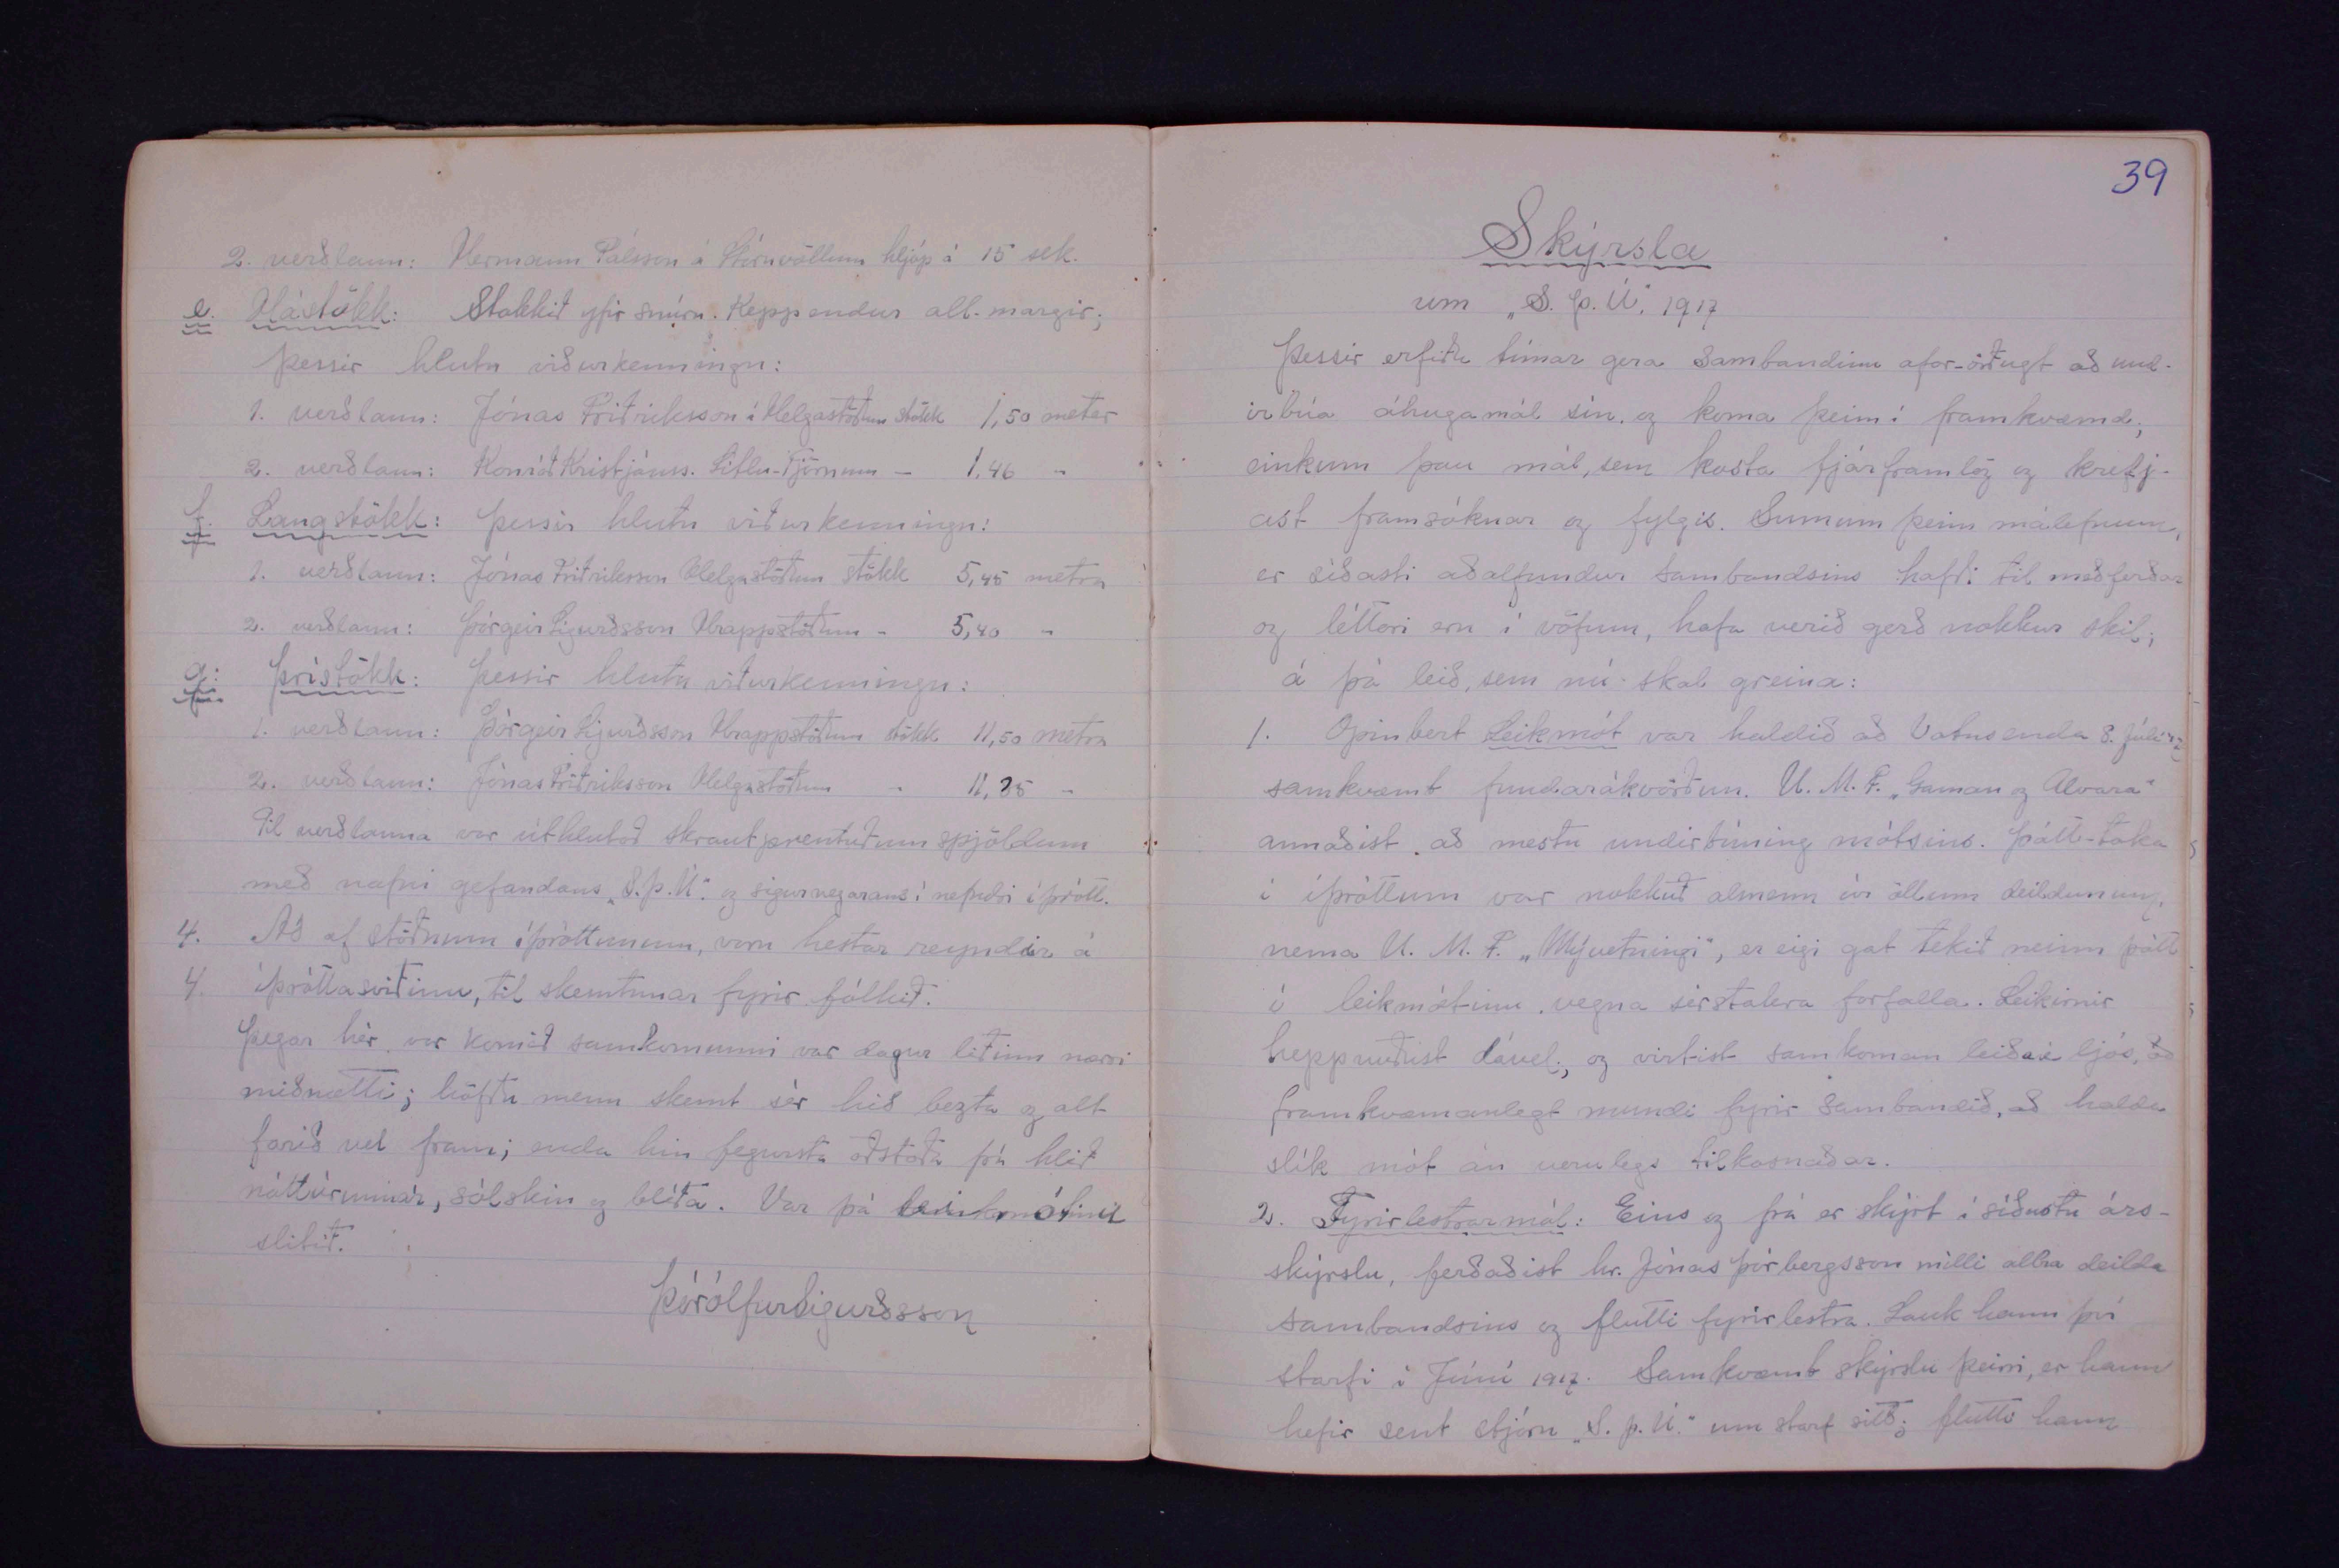 2. verðlaun: Hermann Pálsson á Stórnvöllum hljóp á 15 sek.
e. Hástökk: Stokkið yfir snúru. Keppendur all-margir;
þessir hlutu viðurkenningu:
1. verðlaun: Jónas Friðriksson á Helgastöðum stökk 1,50 meter
2. verðlaun: Konráð Kristjánss. Litlu-Tjörnum – 1,46 –
f. Langstökk: þessir hlutu viðurkenningu:
1. verðlaun: Jónas Friðriksson Helgastöðum stökk 5,45 metra
2. verðlaun: Þórgeir Sigurðsson Hrappstöðum – 5,40 –
g: Þrístökk: þessir hlutu viðurkenningu:
1. verðlaun: Þórgeir Sigurðsson Hrappstöðum stökk 11,50 metra
2. verðlaun: Jónas Friðriksson Helgastöðum – 11,35 –
Til verðlauna var úthlutað skrautprentuðum spjöldum
með nafni gefandans „S.þ.Ú.“ og sigurvegarans í nefndri íþrótt.
4. Að af stöðnum íþróttunum, voru hestar reyndir á
4. íþróttasviðinu, til skemtunar fyrir fólkið.
Þegar hér var komið samkomunni var dagur liðinn nærri
miðnætti; höfðu menn skemt sér hið bezta og alt
farið vel fram; enda hin fegursta aðstaða frá hlið
náttúrunnar, sólskin og blíða. Var þá leikmótinu
slitið.
Þórólfur Sigurðsson
39
Skýrsla
um „S. þ. Ú.“ 1917
Þessir erfiðu tímar gera Sambandinu afar-örðugt að und-
irbúa áhugamál sín, og koma þeim í framkvæmd;
einkum þau mál, sem kosta fjárframlög og krefj-
ast framsóknar og fylgis. Sumum þeim málefnum,
er síðasti aðalfundur sambandsins hafði til meðferðar
og léttari eru í vöfum, hafa verið gerð nokkur skil;
á þá leið, sem nú skal greina:
1. Opinbert Leikmót var haldið að Vatnsenda 8. júlí
samkvæmt fundarákvörðun. U. M. F. „Gaman og Alvara“
annaðist að mestu undirbúning mótsins. Þátt-taka
í íþróttum var nokkuð almenn úr öllum deildunum,
nema U. M. F. „Mývetningi“, er eigi gat tekið neinn þátt
í leikmótinu vegna sérstakra forfalla. Leikirnir
heppnuðist dável, og virtist samkoman leiða í ljós, að
framkvæmanlegt mundi fyrir Sambandið, að halda
slík mót án verulegs tilkosnaðar.
2. Fyrirlestrarmál: Eins og frá er skýrt í síðustu árs-
skýrslu, ferðaðist hr. Jónas Þórbergsson milli allra deilda
sambandsins og flutti fyrirlestra. Lauk hann því
starfi í Júní 1917. Samkvæmt skýrslu þeirri, er hann
hefir sent stjórn „S. þ. Ú.“ um starf sitt; flutti hann